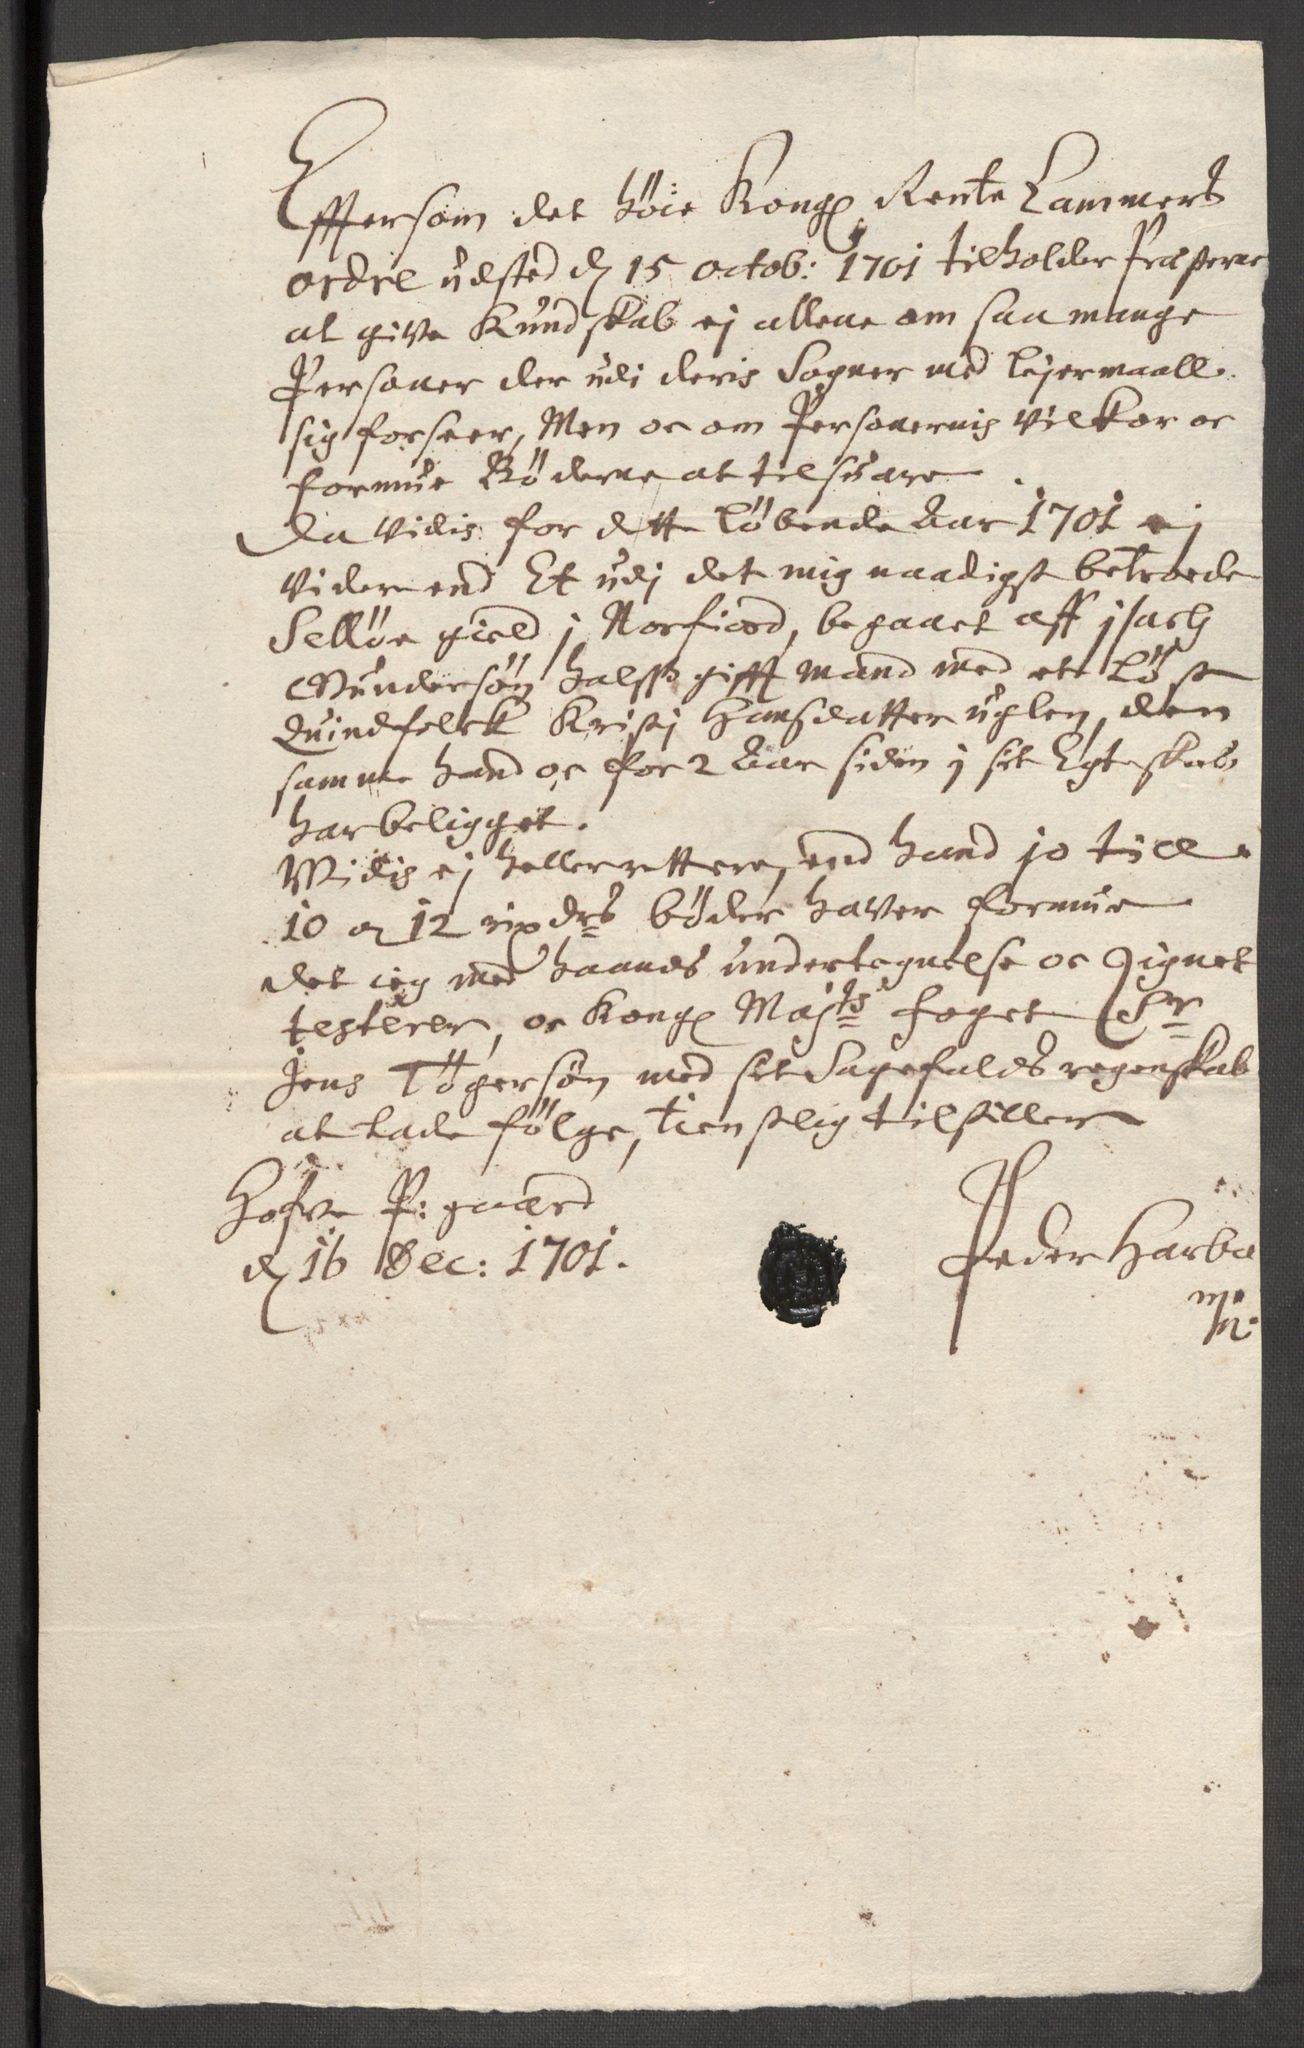 Effersom det höie Kongl Rente Cammers
ordre üdsted dn 15 octob: 1701 tilholder Præsterne
at give Kundskab ej allene om saa mange
Personer der udi deris Sogner med lejermaall
sig forseer, Men oc om Personernis vilkor oc
formue Böderne at tilsvare.
Da vidis for dette löbende Aar 1701 ej
videre end Et udj det mig naadigst betroede
Selløe gield j Norfiord, begaaet aff jsach
Gundersøn halfs gifft mand med ett löst
Quindfolck Kristj Hansdatter üglen, den
samme hand oc for 2 Aar siden j sit Egteskab
har beligget.
Widis ej heller rettere, end hand jo till
10 a 12 rixdrs böder haver formue
det ieg med haands undertegnelse oc Signet
testerer, oc Kongl Majts foget Sr
Jens Tögersøn med sit Sagefalds regenskab
at lade fölge, tienstlig tilstiller
Hofve P: gaard
dn 16 Dec: 1701.
Peder Harboe
mp.